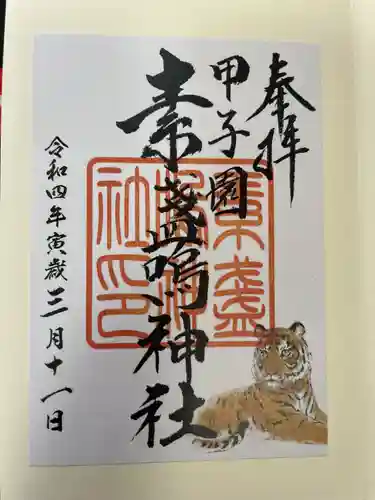 奉拝
甲子園
素盞嗚神社
素盞嗚神社印
令和四年寅歳三月十一日